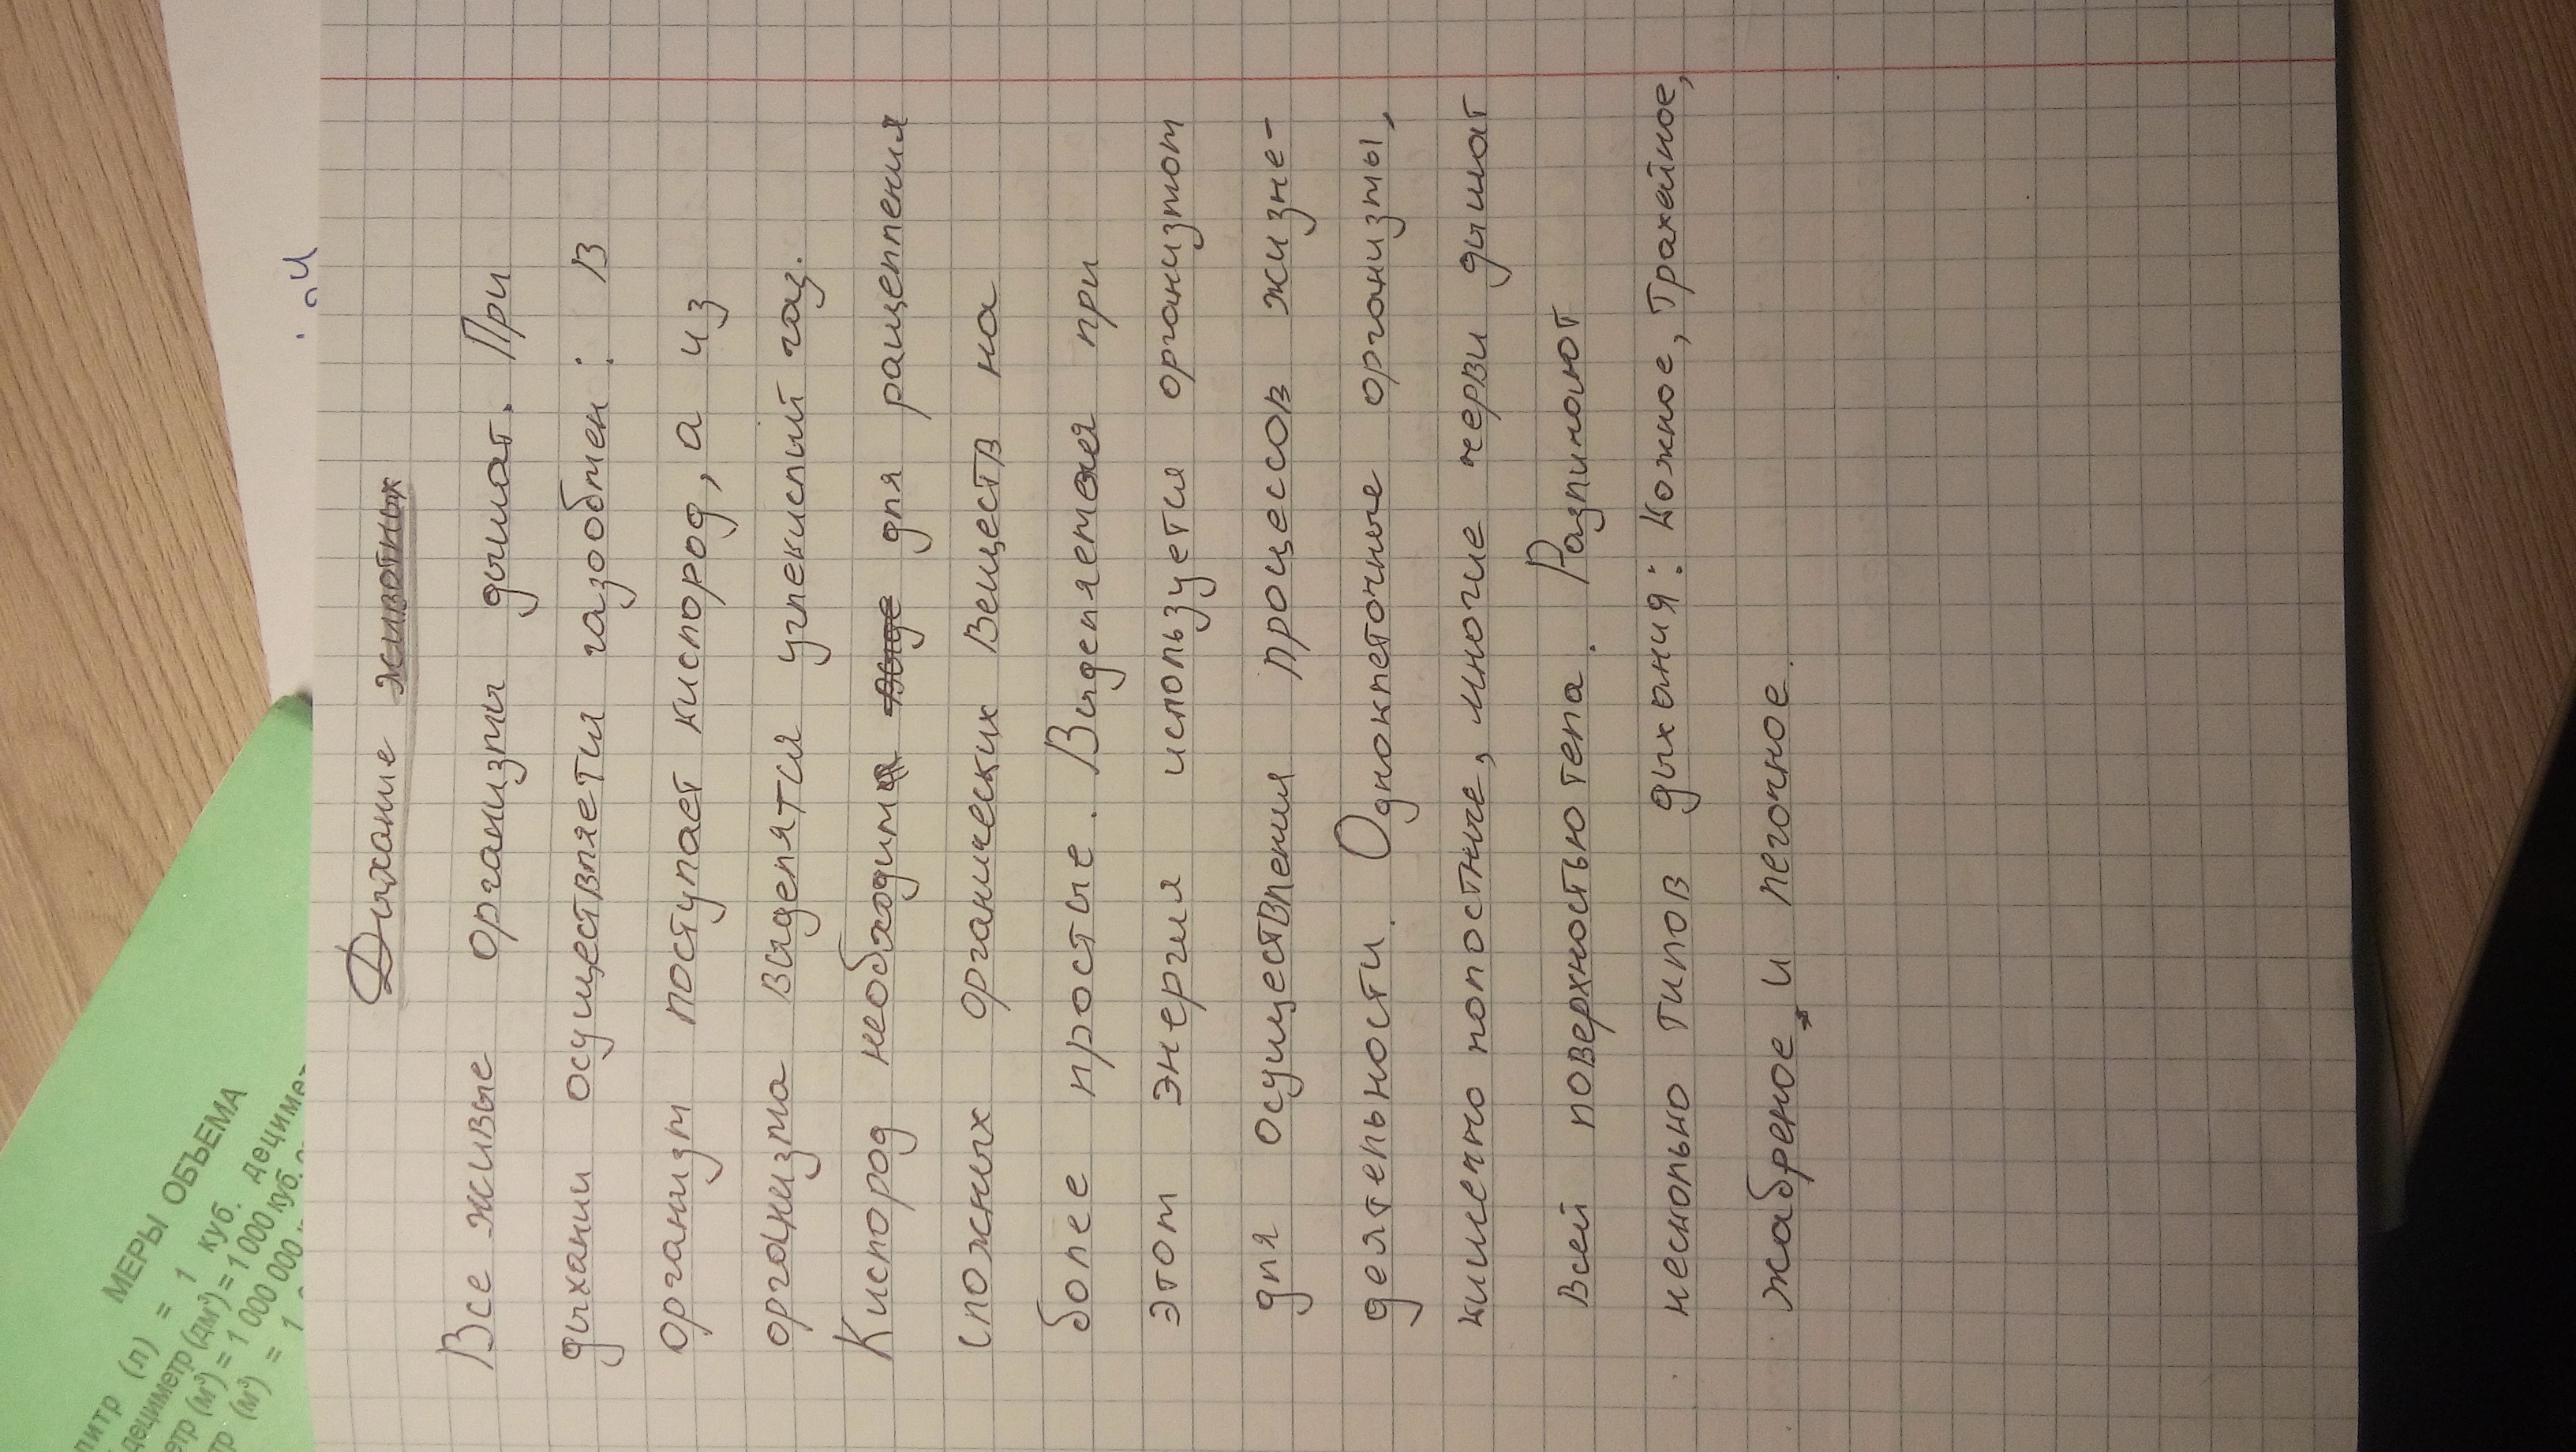 Дыхание животных
Все живые организмы дышат. При
дыхании осуществляется газообмен: в
организм поступает кислород, а из
организма выделятся углекислый газ.
Кислород необходим для ращепления
сложных органических веществ на
более простые. Выделяемая при
этом энергия используется организмом
для осуществления процессов жизне-
деятельности. Одноклеточные организмы,
кишечно полостные, многие черви дышат
всей поверхностью тела. Различают
несколько типов дыхания: кожное, трахейное,
жабреное и легочное.
МЕРЫ ОБЪЕМА
литр (л) = 1 куб. дециме
дециметр (дм³) = 1000 куб.
етр (м³) = 1 000 000
тр (м³) = 1